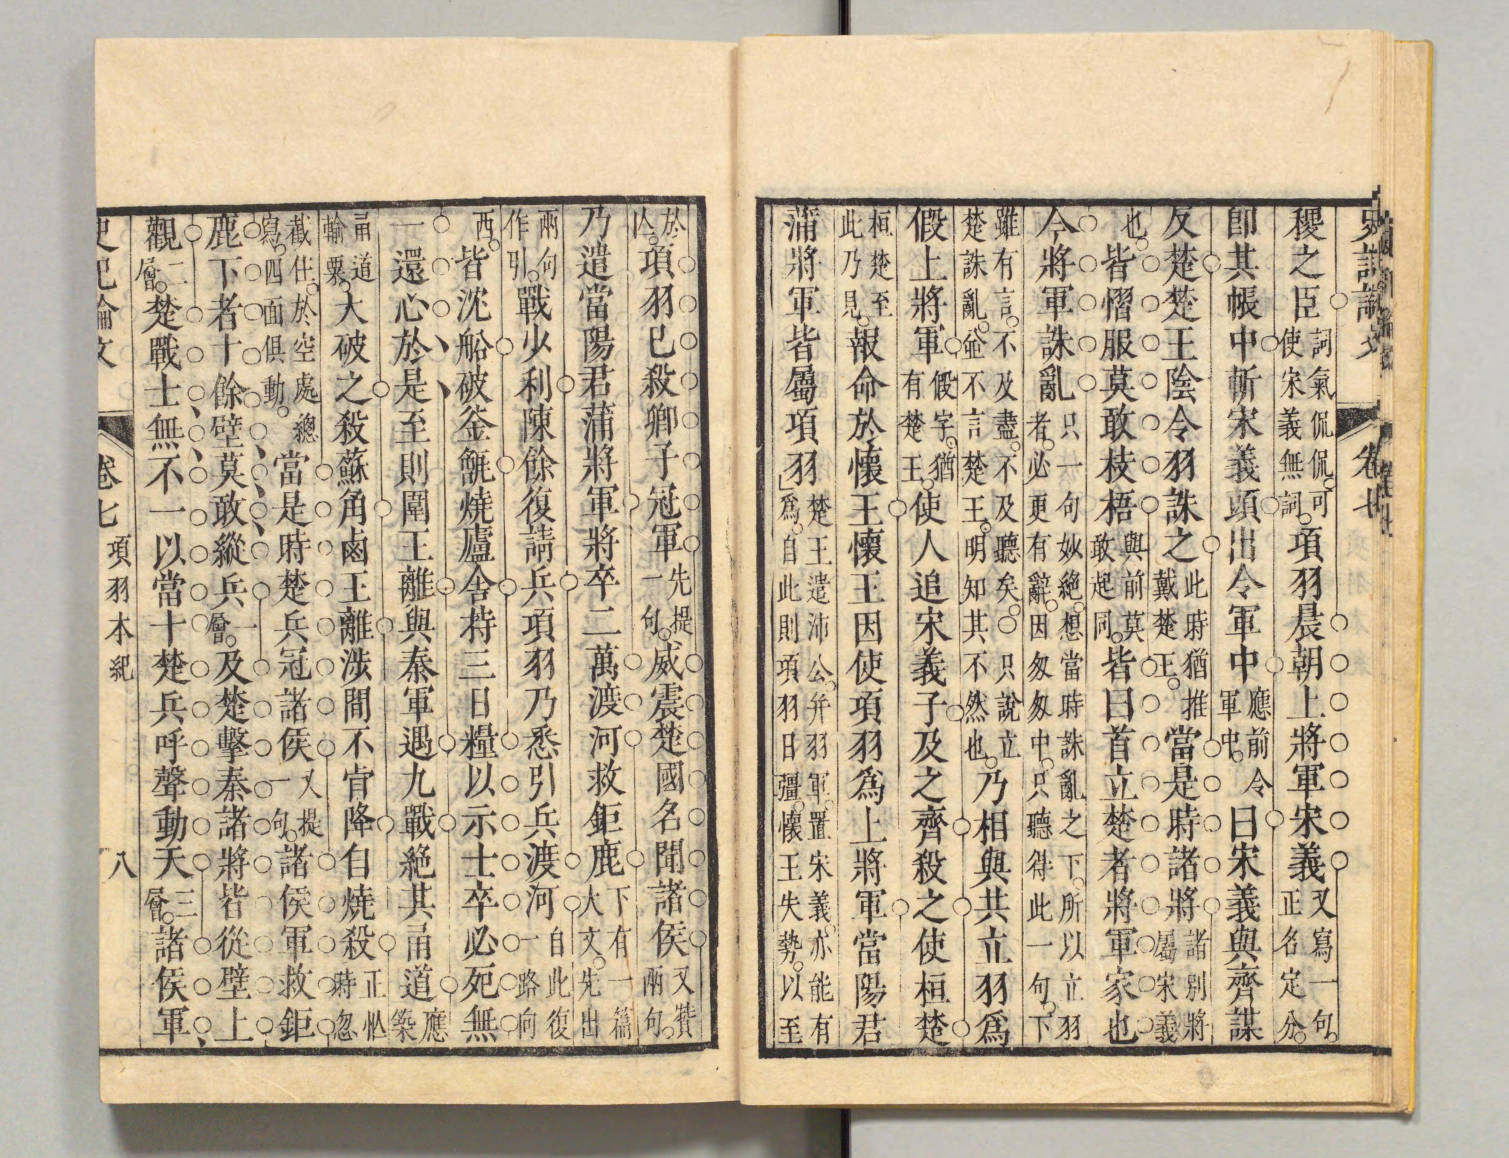 史記論文
卷七
稷之臣詞氣侃侃可使宋義無詞項羽晨朝上將軍宋義又寫一句正名定分
卽其帳中斬宋義頭出令軍中應前令軍中曰宋義與齊謀
反楚楚王陰令羽誅之此時猶推戴楚王當是時諸將諸別將屬宋義
也皆慴服莫敢枝梧與前莫敢起同皆曰首立楚者將軍家也
今將軍誅亂只一句妙絕想當時誅亂之下所以立羽者必更有辭因匆匆中只聽得此一句下
雖有言不及盡不及聽矣○只說立楚誅亂並不言楚王明知其不然也乃相與共立羽爲
假上將軍假字猶有楚王使人追宋義子及之齊殺之使桓楚
桓楚至此乃見報命於懷王懷王因使項羽爲上將軍當陽君
蒲將軍皆屬項羽楚王遣沛公并羽軍置宋義亦能有爲自此則項羽日彊懷王失勢以至
於亾項羽已殺卿子冠軍先提一句威震楚國名聞諸侯又贊兩句
乃遣當陽君蒲將軍將卒二萬渡河救鉅鹿下有一篇大文先出
兩句作引戰少利陳餘復請兵項羽乃悉引兵渡河自此復一路向
西皆沈船破釜甑燒廬舍持三日糧以示士卒必死無
一還心於是至則圍王離與秦軍遇九戰絕其甬道應築
甬道輸粟大破之殺蘇角鹵王離涉間不肯降自燒殺正忙時忽
截住於空處總寫四面俱動當是時楚兵冠諸侯又提一句諸侯軍救鉅
鹿下者十餘壁莫敢縱兵一層及楚擊秦諸將皆從壁上
觀二層楚戰士無不一以當十楚兵呼聲動天三層諸侯軍
史記論文
卷七
項羽本紀
八